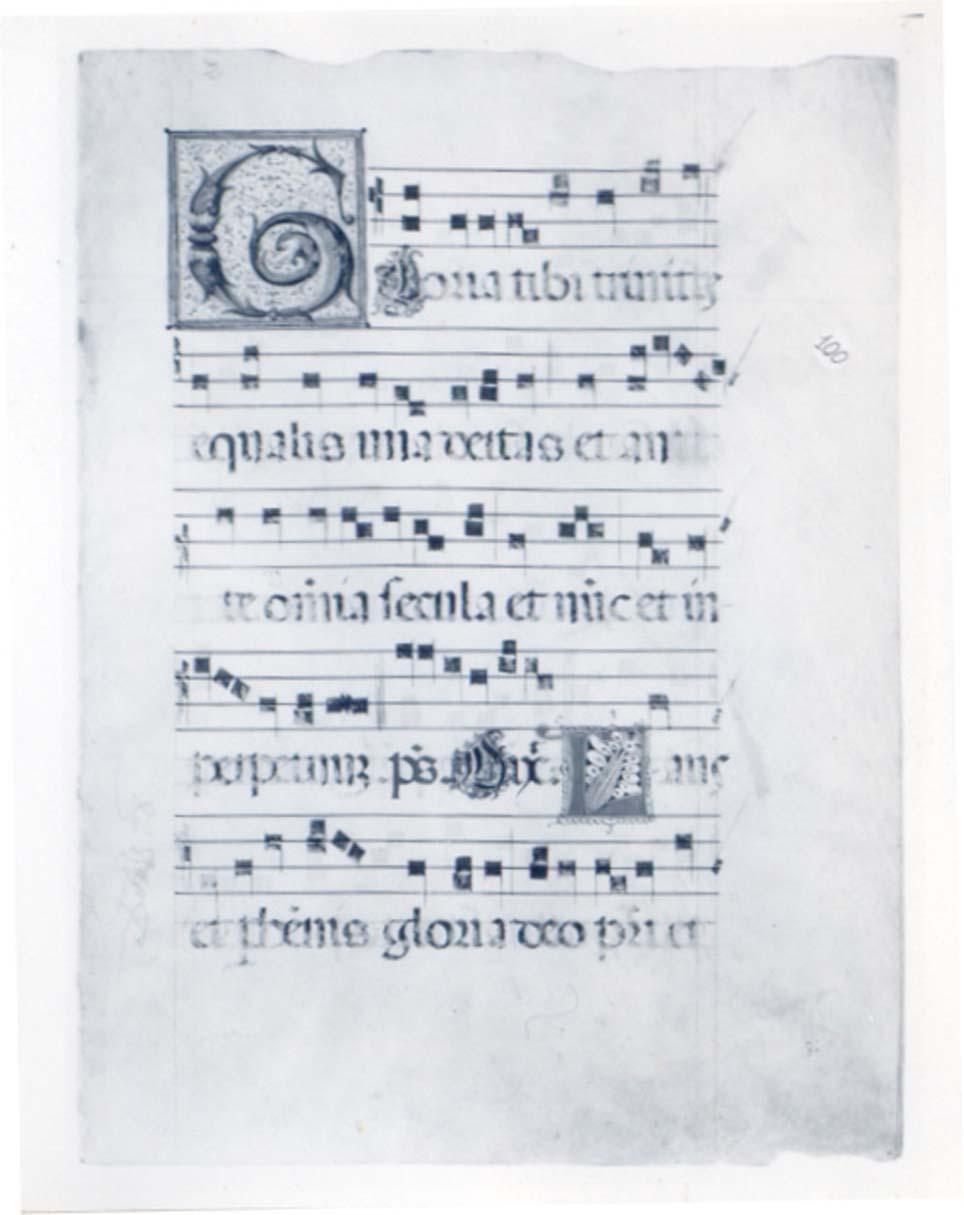 Gloria tibi trinitas
equalis una deitas et ante
te om̄ia secula et nūc et in
perpetuum. ps. Dix̄. Laus
et phēnis gloria deo pr̄i et
100